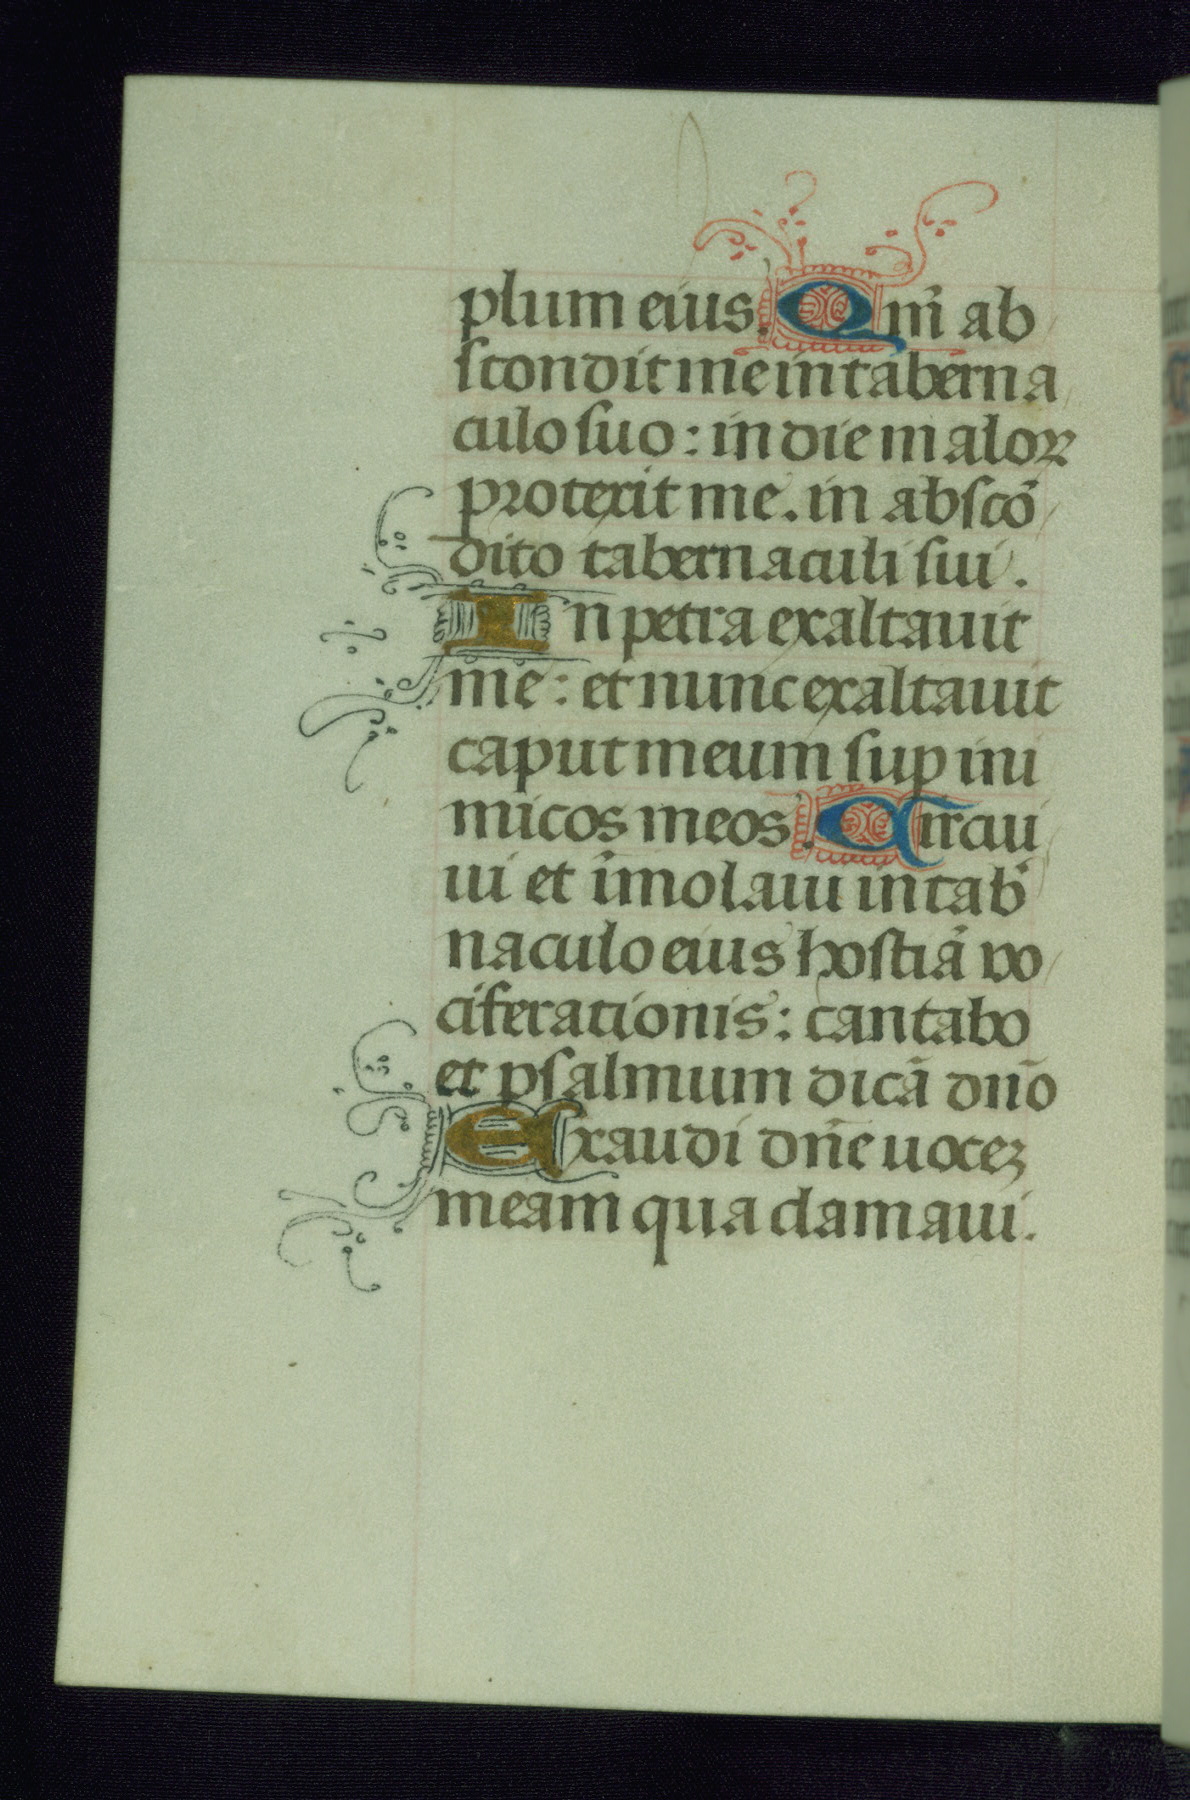 plum eius. Qm̄ ab
scondit me in taberna
culo suo: in die maloꝝ
protexit me. in abscō
dito tabernaculi sui.
In petra exaltauit
me: et nunc exaltauit
caput meum suꝑ ini
micos meos. Circui
ui et īmolaui in tab̄
naculo eius hostiā vo
ciferationis: cantabo
et psalmum dicā dn̄o
Exaudi dn̄e uoceꝫ
meam qua clamaui.